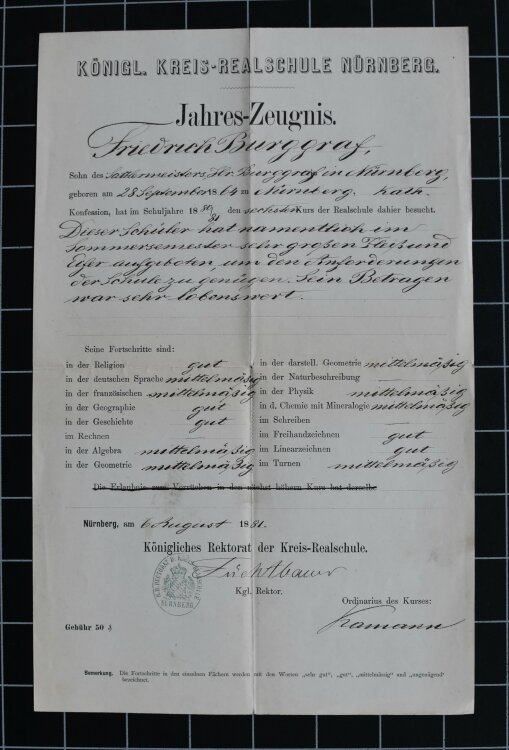 KÖNIGL. KREIS-REALSCHULE NÜRNBERG.
Jahres-Zeugnis.
Friedrich Burggraf,
Sohn des Hr. Burggraf in Nürnberg,
geboren am 28 September 1864 zu Nürnberg. kath.
Konfession, hat im Schuljahr 18 80/81 den sechsten Kurs der Realschule dahier besucht.
Dieser Schüler hat namentlich im
Sommersemester sehr großen Fleiß und
Eifer aufgeboten, um den Anforderungen
der Schule zu genügen. Sein Betragen
war sehr lobenswert.
Seine Fortschritte sind:
in der Religion gut
in der deutschen Sprache mittelmäßig
in der französischen " mittelmäßig
in der Geographie gut
in der Geschichte gut
im Rechnen
in der Algebra mittelmäßig
in der Geometrie mittelmäßig
in der darstell. Geometrie mittelmäßig
in der Naturbeschreibung —
in der Physik mittelmäßig
in d. Chemie mit Mineralogie mittelmäßig
im Schreiben —
im Freihandzeichnen gut
im Linearzeichnen gut
im Turnen mittelmäßig
Die Erlaubnis zum Vorrücken in den nächst höhern Kurs hat derselbe
Nürnberg, am 6 August 1881.
Königliches Rektorat der Kreis-Realschule.
Füchtbauer
Kgl. Rektor.
NÜRNBERG.
Ordinarius des Kurses:
Kamann
Gebühr 50 ₰
Bemerkung. Die Fortschritte in den einzelnen Fächern werden mit den Worten „sehr gut", „gut", „mittelmässig" und „ungenügend"
bezeichnet.